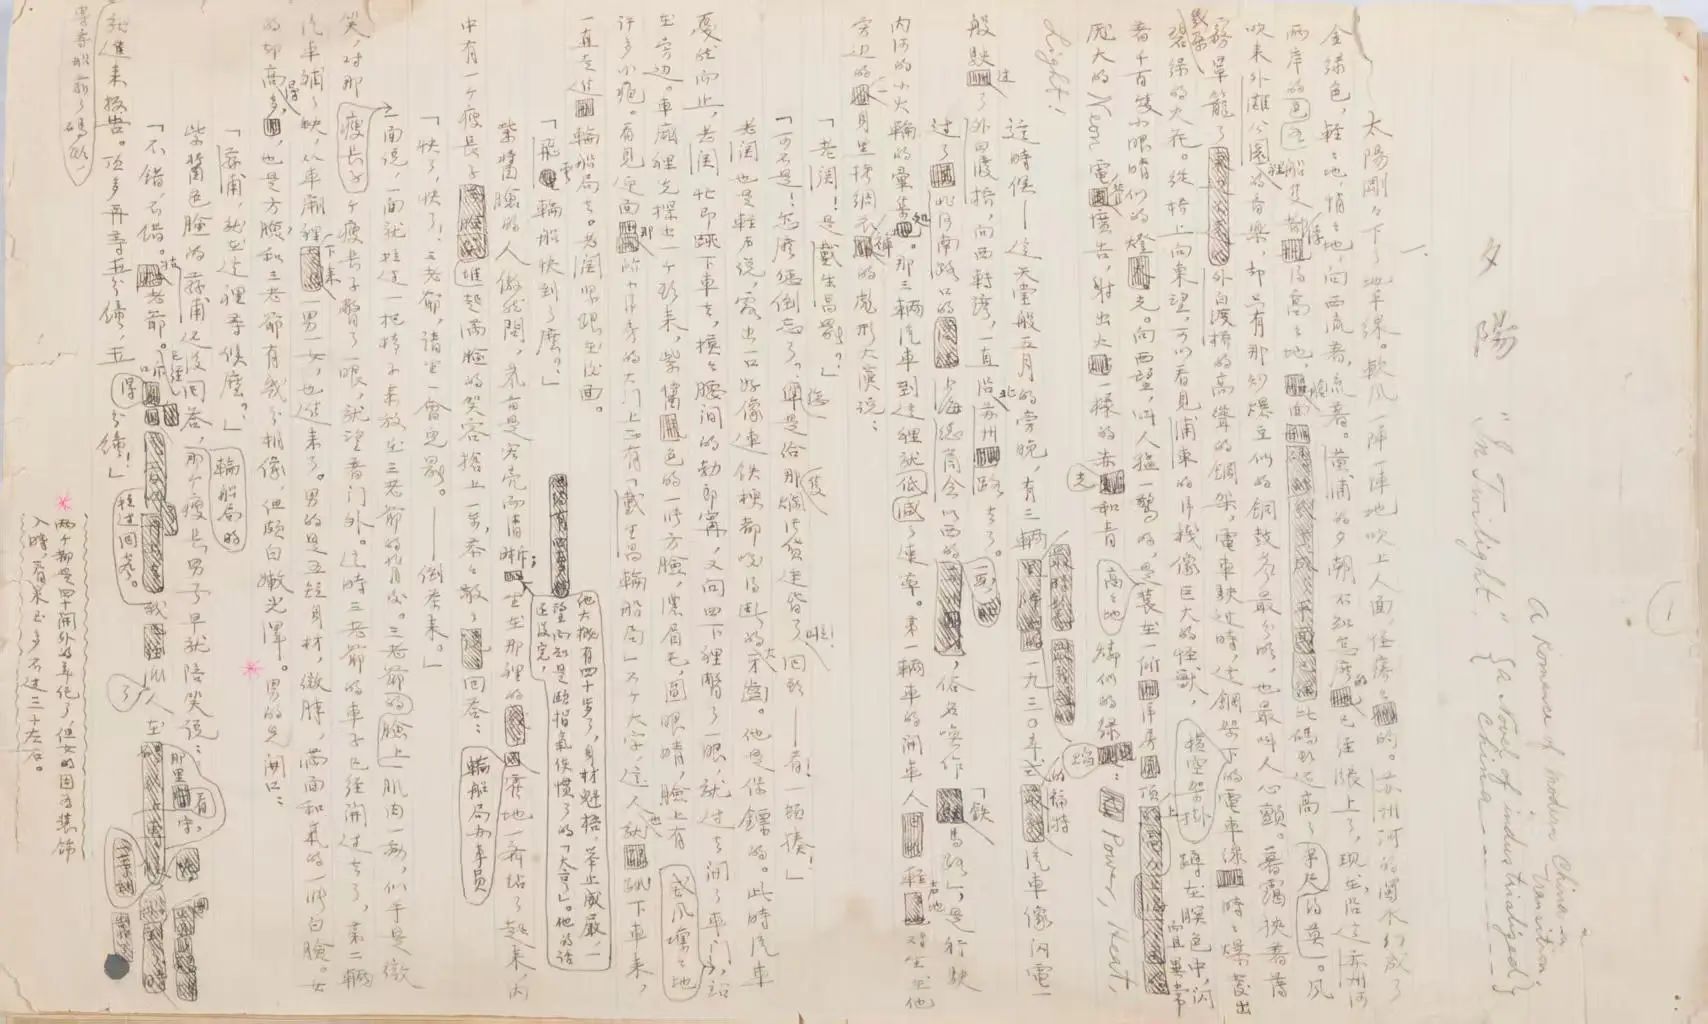 1
夕陽 "In Twilight". {a Novel of industrialized China ------}
A Romance of Modern China in transition,
一、
太陽剛々下了地平線。軟風一陣一陣地吹上人面,怪痒々的。苏州河的濁水幻成了
金綠色,輕々地,悄々地,向西流着,流着。黄浦的夕潮不知怎麽的已经漲上了,現在沿這苏州河
兩岸的各色船隻都浮得高々地,艙面比碼头还高了半尺的莫。風
吹来外灘公園裡的音樂,却只有那炒爆豆似的銅鼓声最分明,也最叫人心顫。暮靄挾着薄
霧罩籠了外白渡橋的高聳的鋼架,電車駛过時,這鋼架下横空架掛的電車線時々爆发出
幾朵碧綠的火花。從橋上向東望,可以看見浦東的洋棧像巨大的怪獸,蹲在暝色中,閃
着千百隻小眼睛似的燈火。向西望,叫人猛一驚的,是高々地裝在一所洋房頂上而且異常
庞大的Neon電管廣告,射出火一樣的赤光和青燐似的綠焰:Power, Heat,
Light!
這時候——這天堂般五月的旁晚,有三輛一九三〇年式的福特汽車像闪電一
般駛过了外白渡橋,向西轉湾,一直沿北苏州路去了。
过了北河南路口的上海總商会以西的一段,俗名喚作「鉄馬路」,是行駛
内河的小火輪的彙集处。那三輛汽車到這裡就低減了速率。第一輛車的開車人輕声地对坐在他
旁边的一身拷綢衣褲的彪形大漢说:
「老関!是戴生昌罷?」
「可不是!怎麽您倒忘了?準是给那隻爛污貨迷昏了啦!回头——有一頓揍!」
老関也是輕声说,露出一口好像連铁梗都咬得断的大牙齒。他是保鏢的。此時汽車
戛然而止,老関忙即跳下車去,摸々腰间的勃郎寧,又向四下裡瞥了一眼,就过去開了車门,站
在旁边。車廂裡先探出一个头来,紫醬色的一張方臉,濃眉毛,圆眼睛,臉上有
許多小疱。看見迎面那所小洋房的大门上正有「戴生昌輪船局」六个大字,这人也就跳下車来,
一直走進輪船局去。老関紧跟在後面。
「飛雲輪船快到了麽?」
紫醬臉的人傲然問,声音是宏亮而清晰;他大概有四十岁了,身材魁梧,举止威嚴,一望而知是颐指氣使慣了的「大亨」。他的話还没完,坐在那裡的輪船局办事員一齊站了起来,内
中有一个瘦長子堆起滿臉的笑容搶上一步,恭々敬々回答:
「快了,快了!三老爺,請坐一會兒罷。——倒茶来。」
瘦長子一面说,一面就拉过一把椅子来放在三老爺的背後。三老爺的臉上肌肉一動,似乎是微
笑,对那个瘦長子瞥了一眼,就望着门外。这時三老爺的車子已经開过去了,第二輛
汽車補了缺,从車廂裡下来一男一女,也進来了。男的是五短身材,微胖,滿面和氣的一張白臉。女
的却高得多,也是方臉,和三老爺有幾分相像,但頗白嫩光澤。男的先開口:
兩个都是四十開外的年纪了,但女的因為裝飾
入時,看来至多不过三十左右。
「蓀甫,就在这裡等候麽?」
紫醬色臉的蓀甫还没回答,輪船局的那个瘦長男子早就陪笑说:
「不錯,不錯。姑老爺。已经拉过回声。我人在那里看守,
就進来报告。頂多再等五分鐘,五分鐘!」